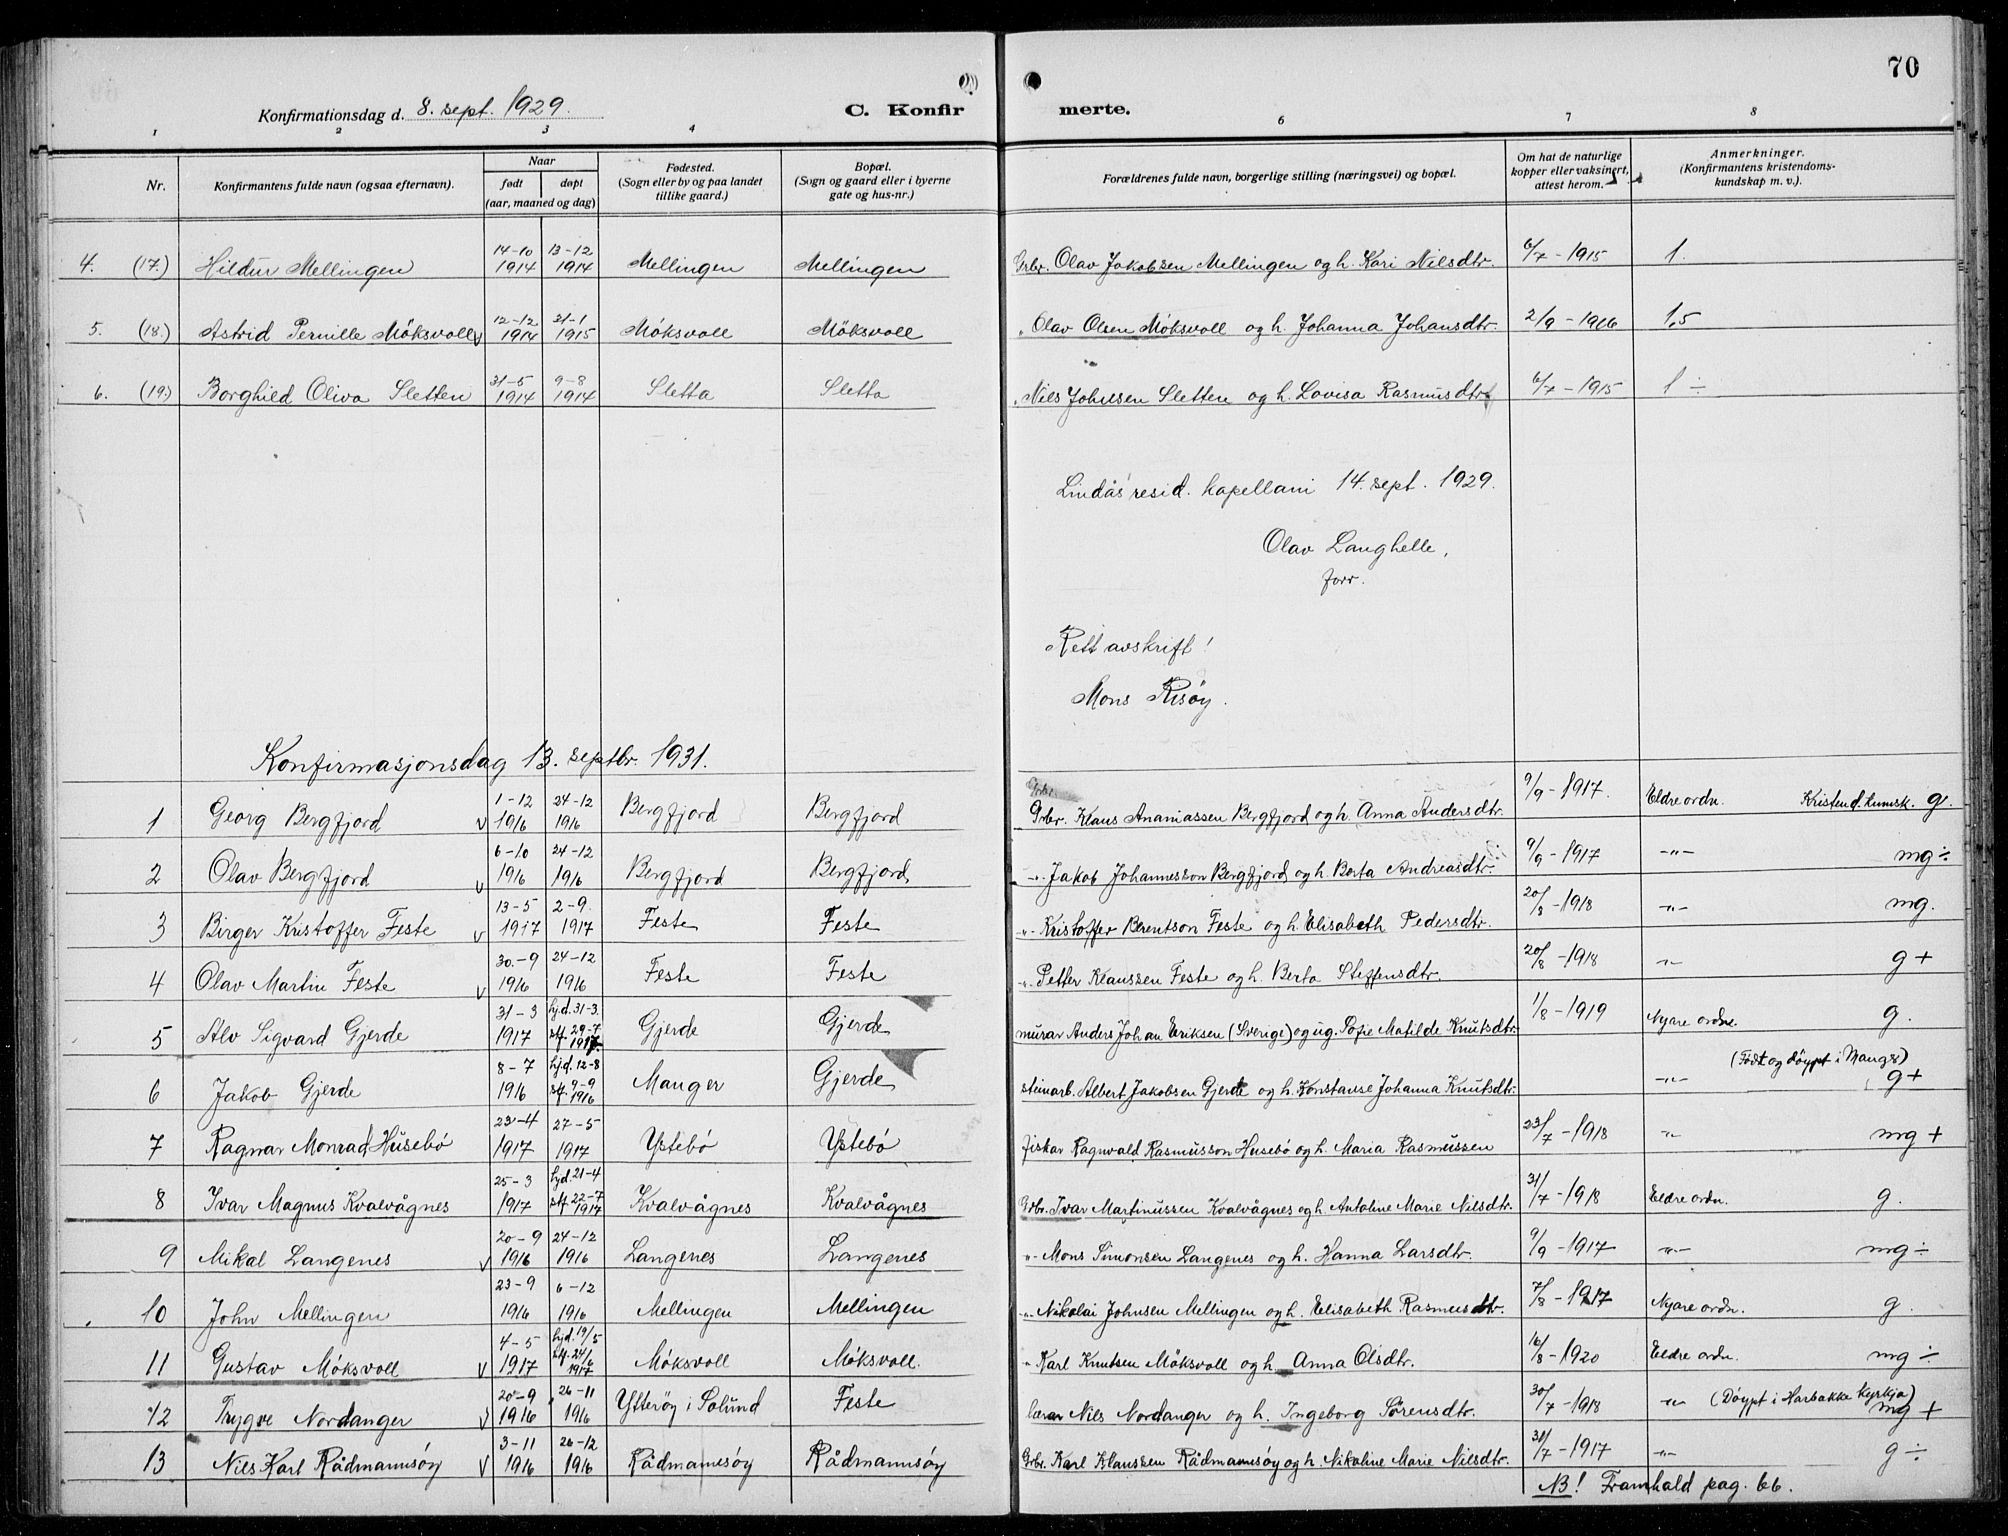 70
Konfirmationsdag d. 8. sept. 1929. C. Konfir merte.
1 2 3 4 6 7 8
Nr. Konfirmantens fulde navn (ogsaa efternavn). Naar født døpt (aar, maaned og dag) Fødested. (Sogn eller by og paa landet tillike gaard.) Bopæl. (Sogn og gaard eller i byerne gate og hus-nr.) Forældrenes fulde navn, borgerlige stilling (næringsvei) og bopæl. Om hat de naturlige kopper eller vaksinert, attest herom. Anmerkninger. (Konfirmantens kristendoms-kundskap m. v.).
4. (17.) Hildur Mellingen 14-10 1914 13-12 1914 Mellingen Mellingen Grbr. Olav Jakobsen Mellingen og h. Kari Nilsdtr. 6/7 - 1915 1.
5. (18.) Astrid Pernille Möksvoll v 12-12 1914 31-1 1915 Möksvoll Möksvoll " Olav Olsen Möksvoll og h. Johanna Johansdtr. 2/9 - 1916 1,5
6. (19.) Borghild Oliva Sletten 31-5 1914 9-8 1914 Sletta Sletta " Nils Johnsen Sletten og h. Lovisa Rasmusdtr. 6/7 - 1915 1 ÷
Lindås resid. kapellani 14. sept. 1929.
Olav Langhelle,
forr.
Rett avskrift!
Mons Risöy.
Konfirmasjonsdag 13. septbr. 1931.
1 Georg Bergfjord v 1-12 1916 24-12 1916 Bergfjord Bergfjord Grbr. Klaus Ananiassen Bergfjord og h. Anna Andersdtr. 9/9 - 1917. Eldre ordn. Kristend.kunnsk. g.
2 Olav Bergfjord v 6-10 1916 24-12 1916 Bergfjord Bergfjord -"- Jakob Johannesson Bergfjord og h. Berta Andreasdtr. 9/9 - 1917 -"- mg ÷
3 Birger Kristoffer Feste v 13-5 1917 2-9. 1917 Feste Feste -"- Kristoffer Berentson Feste og h. Elisabeth Pedersdtr. 20/8 - 1918 -"- mg.
4 Olav Martin Feste v 30-9 1916 24-12 1916 Feste Feste -"- Petter Klaussen Feste og h. Berta Steffensdtr. 20/8 - 1918 -"- g +
5 Alv Sigvard Gjerde 31-3 1917 hj.d. 31-3. stf. 29-7 1917. Gjerde Gjerde murar Anders Johan Eriksen (Sverige) og ug. Sofie Matilde Knutsdtr. 1/8 - 1919 Nyare ordn. g.
6 Jakob Gjerde 8-7 1916 hj.d. 12-8 stf. 9-9 1916 Manger Gjerde steinarb. Albert Jakobsen Gjerde og h. Konstanse Johanna Knutsdtr. -"- (Född og döypt i Manger) g +
7 Ragnar Monrad Husebö 23-4 1917 27-5 1917 Ystebö Ystebö fiskar Ragnvald Rasmusson Husebö og h. Maria Rasmussen 23/7 - 1918 -"- mg +
8 Ivar Magnus Kvalvågnes 25-3 1917 hj.d. 21-4 stf. 22-7 1917 Kvalvågnes Kvalvågnes Grbr. Ivar Martinussen Kvalvågnes og h. Antoline Marie Nilsdtr. 31/7 - 1918 Eldre ordn. g.
9 Mikal Langenes v 20-9 1916 24-12 1916 Langenes Langenes -"- Mons Simonsen Langenes og h. Hanna Larsdtr. 9/9 - 1917 -"- mg ÷
10 John Mellingen 23-9 1916 6-12 1916 Mellingen Mellingen -"- Nikolai Johnsen Mellingen og h. Elisabeth Rasmusdtr. 7/8 - 1917 Nyare ordn. g.
11 Gustav Möksvoll v 4-5 1917 hj.d. 19/5 stf. 24/6 1917 Möksvoll Möksvoll. " Karl Knutsen Möksvoll og h. Anna Olsdtr. 16/8 - 1920 Eldre ordn. mg ÷
12 Trygve Nordanger v 20-9 1916 26-11 1916 Ytteröy i Solund Feste lærar Nils Nordanger og h. Ingeborg Sörensdtr. 30/7 - 1918 -"- (Döypt i Harbakke kyrkja) mg +
13 Nils Karl Rådmannsöy v 3-11 1916 26-12 1916 Rådmannsöy Rådmannsöy Grbr. Karl Klaussen Rådmannsöy og h. Nikoline Marie Nilsdtr. 31/7 - 1917 -"- g ÷
NB! Framhald pag. 66.